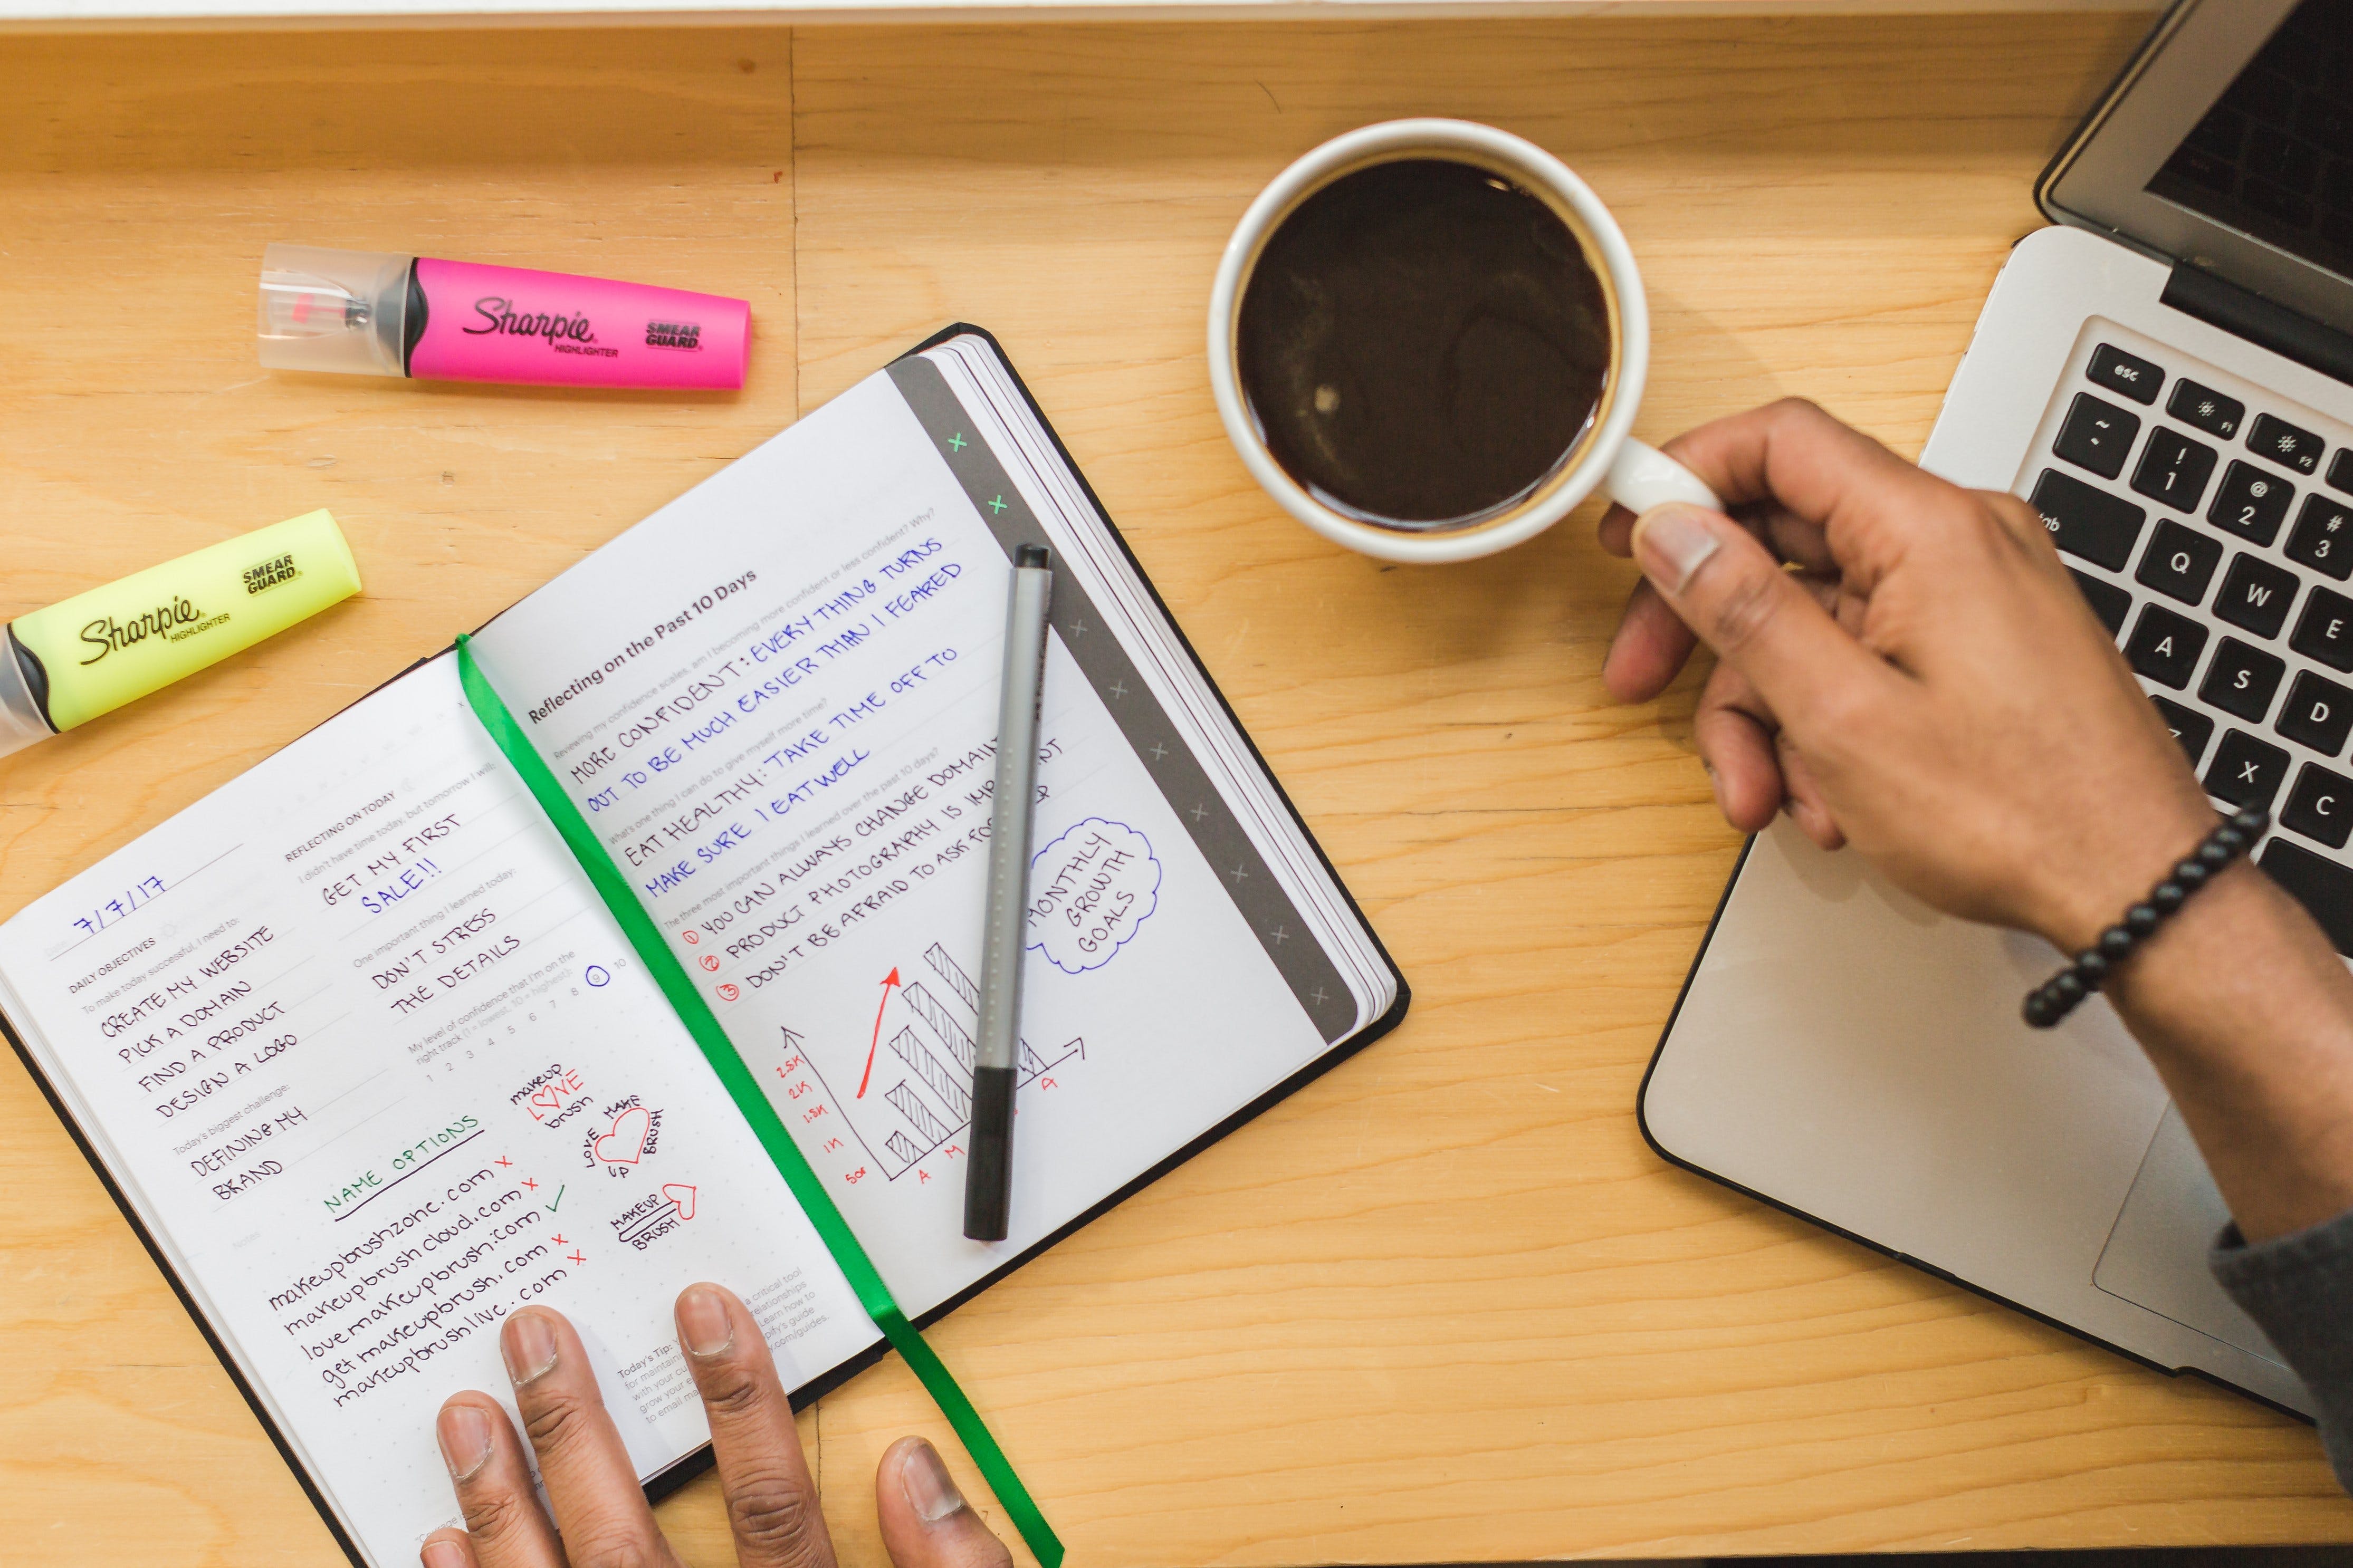 Sharpie
HIGHLIGHTER
SMEAR
GUARD
Sharpie
HIGHLIGHTER
SMEAR
GUARD
7/7/17
DAILY OBJECTIVES
To make today successful, I need to:
CREATE MY WEBSITE
PICK A DOMAIN
FIND A PRODUCT
DESIGN A LOGO
Today's biggest challenge:
DEFINING MY
BRAND
Notes:
REFLECTING ON TODAY
I didn't have time today, but tomorrow I will:
GET MY FIRST
SALE!!
One important thing I learned today:
DON'T STRESS
THE DETAILS
My level of confidence that I'm on the
right track (1 = lowest, 10 = highest):
1 2 3 4 5 6 7 8 9 10
NAME OPTIONS
makeupbrushzone.com x
makeupbrush cloud.com x
love makeupbrush.com ✓
get makeupbrush.com x
makeupbrush live.com x
makeup
LOVE
brush
LOVE
MAKE
UP
BRUSH
MAKEUP
BRUSH
Today's Tip:
for maintaining
with your
grow your
to email
a critical tool
relationships
Learn how to
guide
.com/guides.
Reflecting on the Past 10 Days
Reviewing my confidence scales, am I becoming more confident or less confident? Why?
MORE CONFIDENT: EVERYTHING TURNS
OUT TO BE MUCH EASIER THAN I FEARED
What's one thing I can do to give myself more time?
EAT HEALTHY: TAKE TIME OFF TO
MAKE SURE I EAT WELL
The three most important things I learned over the past 10 days?
1 YOU CAN ALWAYS CHANGE DOMAIN
2 PRODUCT PHOTOGRAPHY IS IMPORTANT
3 DON'T BE AFRAID TO ASK FOR
MONTHLY
GROWTH
GOALS
2.5K
2K
1.5K
1K
500
A M A
esc
F1 F2
~ ! 1 @ 2 # 3
tab Q W E
A S D
Z X C